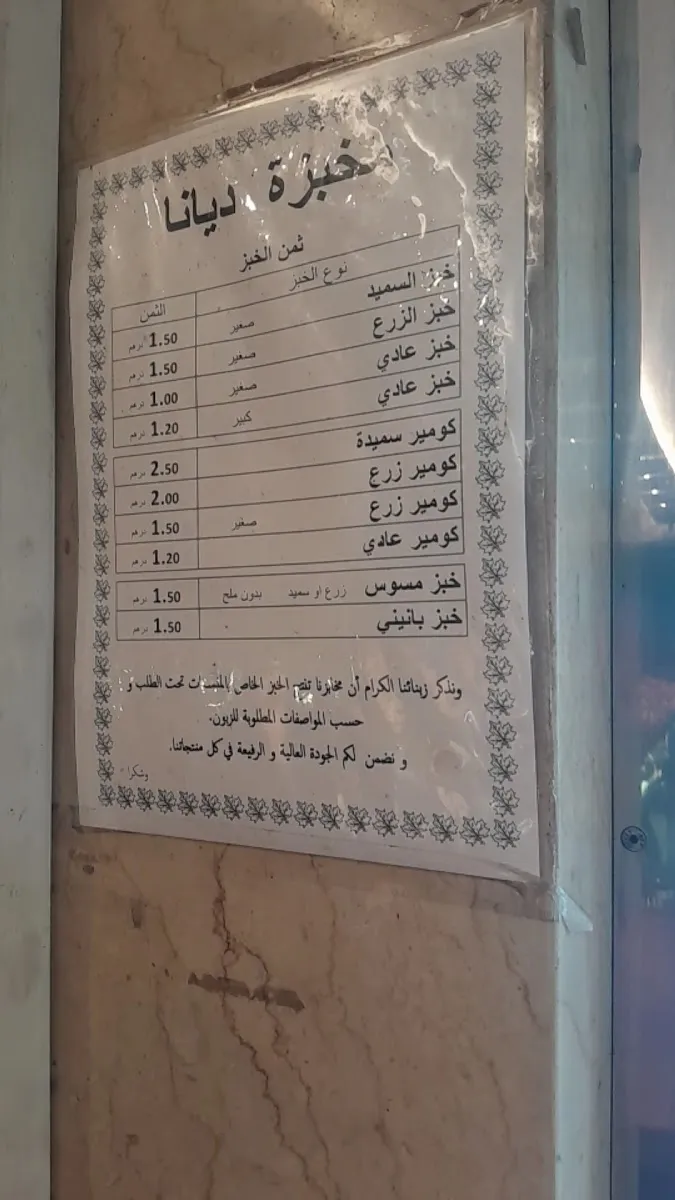 مخبزة ديانا
ثمن الخبز
نوع الخبز الثمن
خبز السميد صغير 1.50 درهم
خبز الزرع صغير 1.50 درهم
خبز عادي صغير 1.00 درهم
خبز عادي كبير 1.20 درهم
كومير سميدة 2.50 درهم
كومير زرع 2.00 درهم
كومير زرع صغير 1.50 درهم
كومير عادي 1.20 درهم
خبز مسوس زرع او سميد بدون ملح 1.50 درهم
خبز بانيني 1.50 درهم
ونذكر زبنائنا الكرام أن مخابزنا الخبز الخاص تحت الطلب و
حسب المواصفات المطلوبة للزبون.
و نضمن لكم الجودة العالية و الرفيعة في كل منتجاتنا.
وشكرا